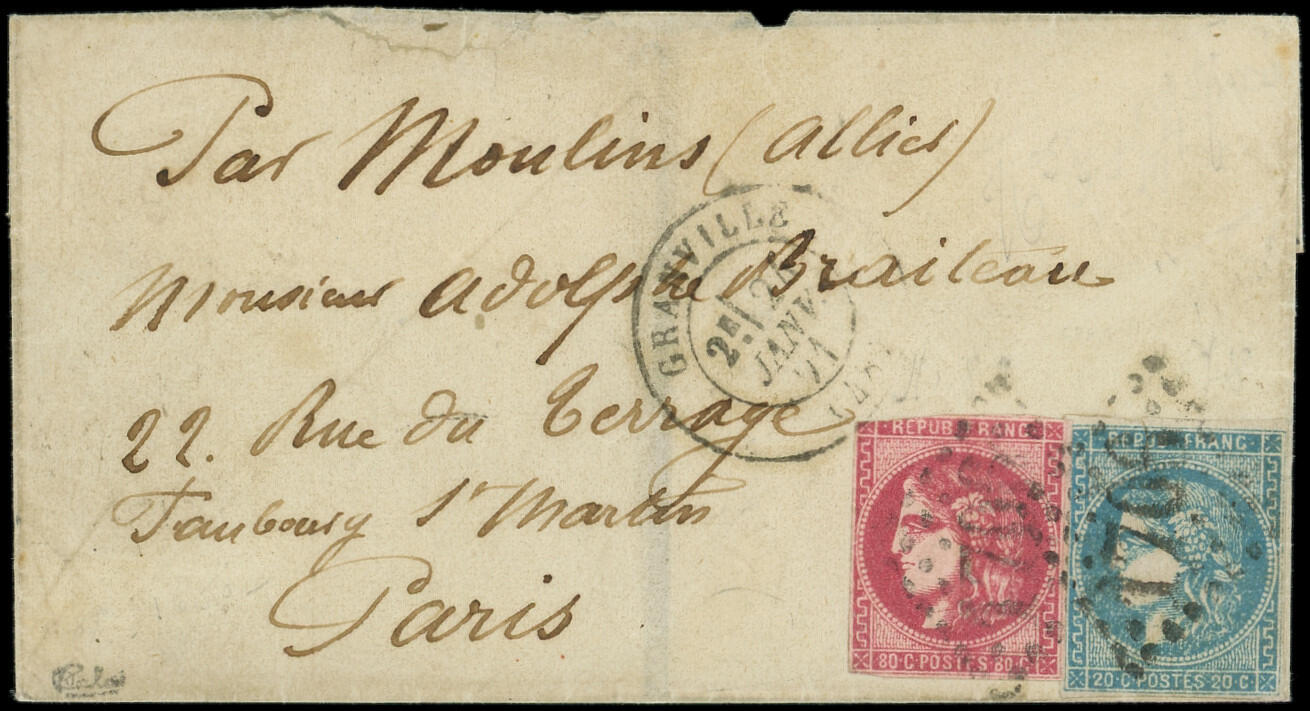 Par Moulins (Allier)
Monsieur Adolphe Braileau
22. Rue du Terrage
Faubourg St Martin
Paris
GRANVILLE
2E
JANV.
71
REPUB FRANC
80·C·POSTES·80·C
REPUB FRANC
20·C·POSTES·20·C